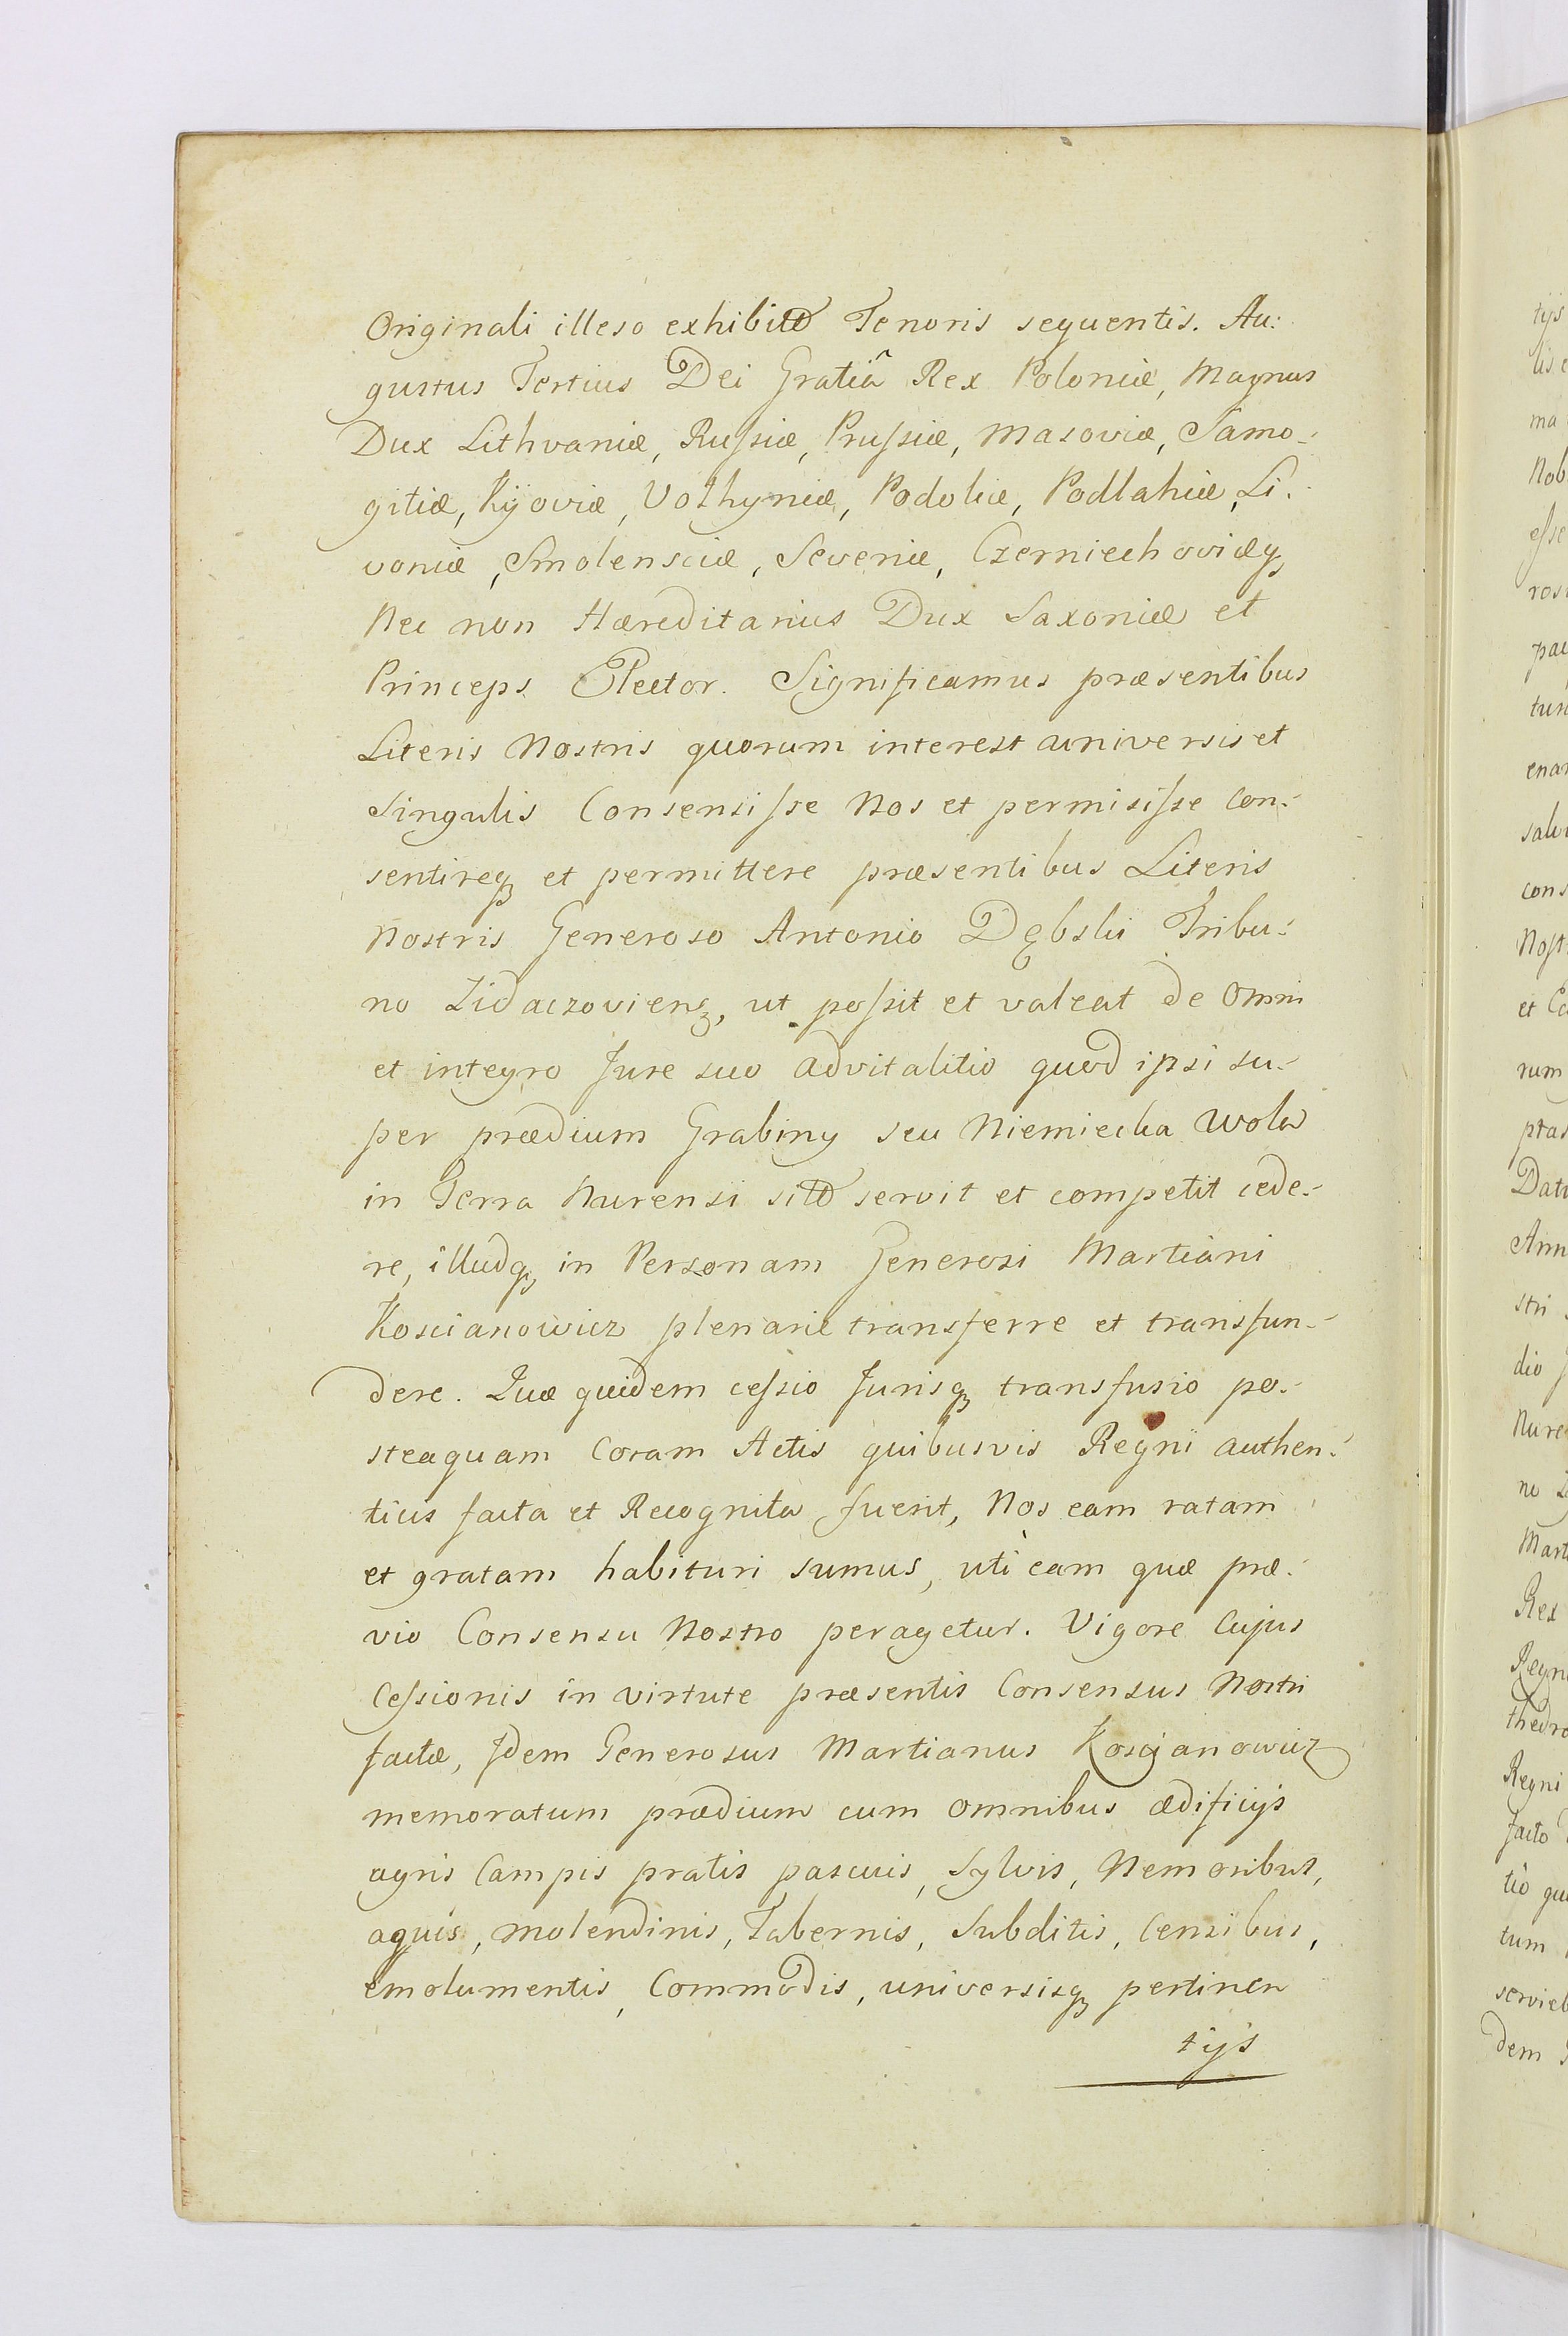 Originali illeso exhibito Tenoris sequentis. Au:
gustus Tertius Dei Gratiâ Rex Poloniæ, Magnus
Dux Lithvaniæ, Ruſsiæ, Pruſsiæ, Masoviæ, Samo-
gitiæ, Kijoviæ, Volhyniæ, Podoliæ, Podlahiæ, Li-
voniæ, Smolensciæ, Severiæ, Czerniechoviæq,
Nec non Hæreditarius Dux Saxoniæ et
Princeps Elector. Significamus præsentibus
Literis Nostris quorum interest universis et
Singulis Consensiſse Nos et permisiſse con-
sentireq et permittere præsentibus Literis
Nostris Generoso Antonio Dębski Tribu-
no Zidaczoviens, ut poſsit et valeat de Omni
et integro Jure suo advitalitio quod ipsi su-
per prædium Grabiny seu Niemiecka Wola
in Terra Nurensi sito servit et competit cede-
re, illudq, in Personam Generosi Martiani
Koscianowicz plenarie transferre et transfun-
dere. Quæ quidem ceſsio Jurisq transfusio po-
steaquam Coram Actis quibusvis Regni authen-
ticis facta et Recognita fuerit, Nos eam ratam
et gratam habituri sumus, uti eam quæ præ-
vio Consensu Nostro peragetur. Vigore Cujus
Ceſsionis in virtute præsentis Consensus Nostri
factæ, Idem Generosus Martianus Koscianowicz
memoratum prædium cum omnibus ædificijs
agris Campis pratis pascuis, Sylvis, Nemoribus,
aquis, molendinis, Tabernis, Subditis, Censibus,
emolumentis, Commodis, universisq pertinen
tijs
tijs
ma
Nob
eſse
tum
cons
et
rum
Dat
Ann
stri
dio
Nure
Mart
Rex
Regn
thedra
Regni
facto
tio qu
tum
servieb
dem